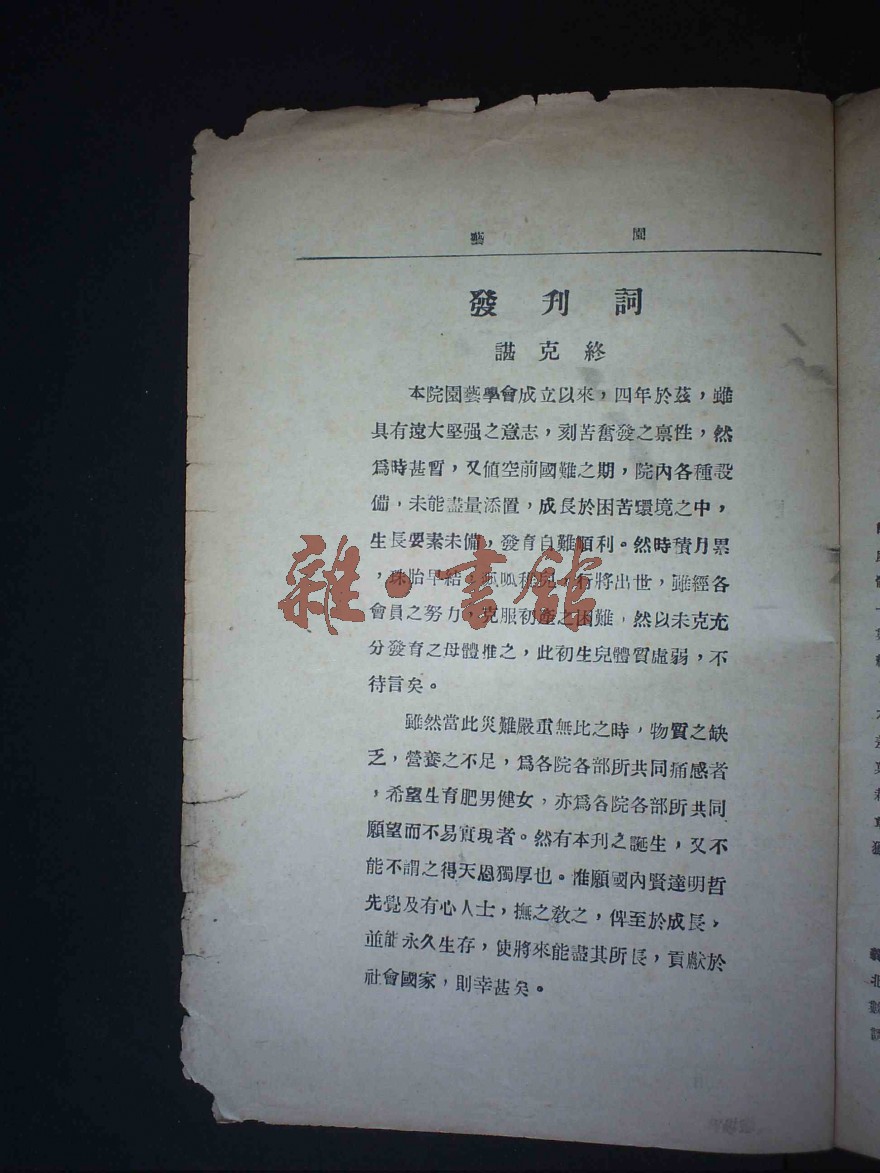 藝園
發刊詞
諶克終
本院園藝學會成立以來，四年於茲，雖
具有遠大堅强之意志，刻苦奮發之禀性，然
爲時甚暫，又値空前國難之期，院內各種設
備，未能盡量添置，成長於困苦環境之中，
生長要素未備，發育自難順利。然時積月累
，珠胎早結，呱呱稚兒，行將出世，雖經各
會員之努力，克服初產之困難，然以未克充
分發育之母體推之，此初生兒體質虛弱，不
待言矣。
雖然當此災難嚴重無比之時，物質之缺
乏，營養之不足，爲各院各部所共同痛感者
，希望生育肥男健女，亦爲各院各部所共同
願望而不易實現者。然有本刊之誕生，又不
能不謂之得天恩獨厚也。惟願國內賢達明哲
先覺及有心人士，撫之敎之，俾至於成長，
並能永久生存，使將來能盡其所長，貢獻於
社會國家，則幸甚矣。
雜·書館